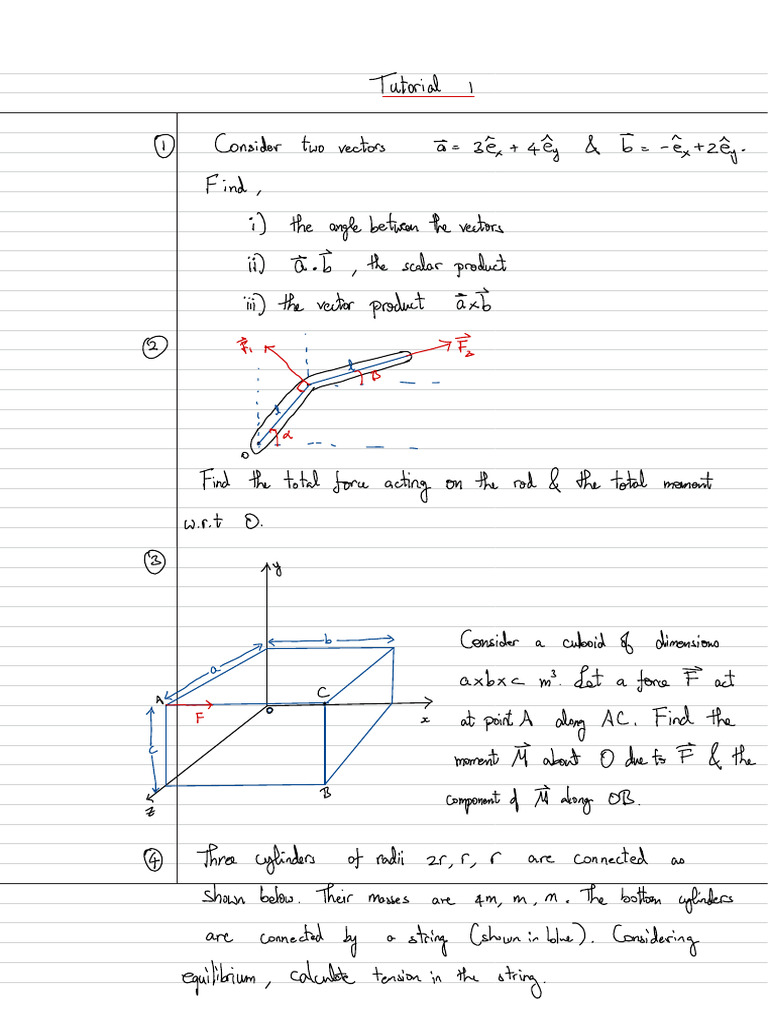 Tutorial 1
① Consider two vectors a⃗ = 3ê_x + 4ê_y & b⃗ = -ê_x + 2ê_y.
Find,
i) the angle between the vectors
ii) a⃗ . b⃗ , the scalar product
iii) the vector product a⃗ x b⃗
②
F⃗₁
F⃗₂
l
β
l
α
O
Find the total force acting on the rod & the total moment
w.r.t O.
③
y
b
a
A
C
F
O
x
c
B
z
Consider a cuboid of dimensions
a x b x c m³. Let a force F⃗ act
at point A along AC. Find the
moment M⃗ about O due to F⃗ & the
component of M⃗ along OB.
④ Three cylinders of radii 2r, r, r are connected as
shown below. Their masses are 4m, m, m. The bottom cylinders
are connected by a string (shown in blue). Considering
equilibrium, calculate tension in the string.